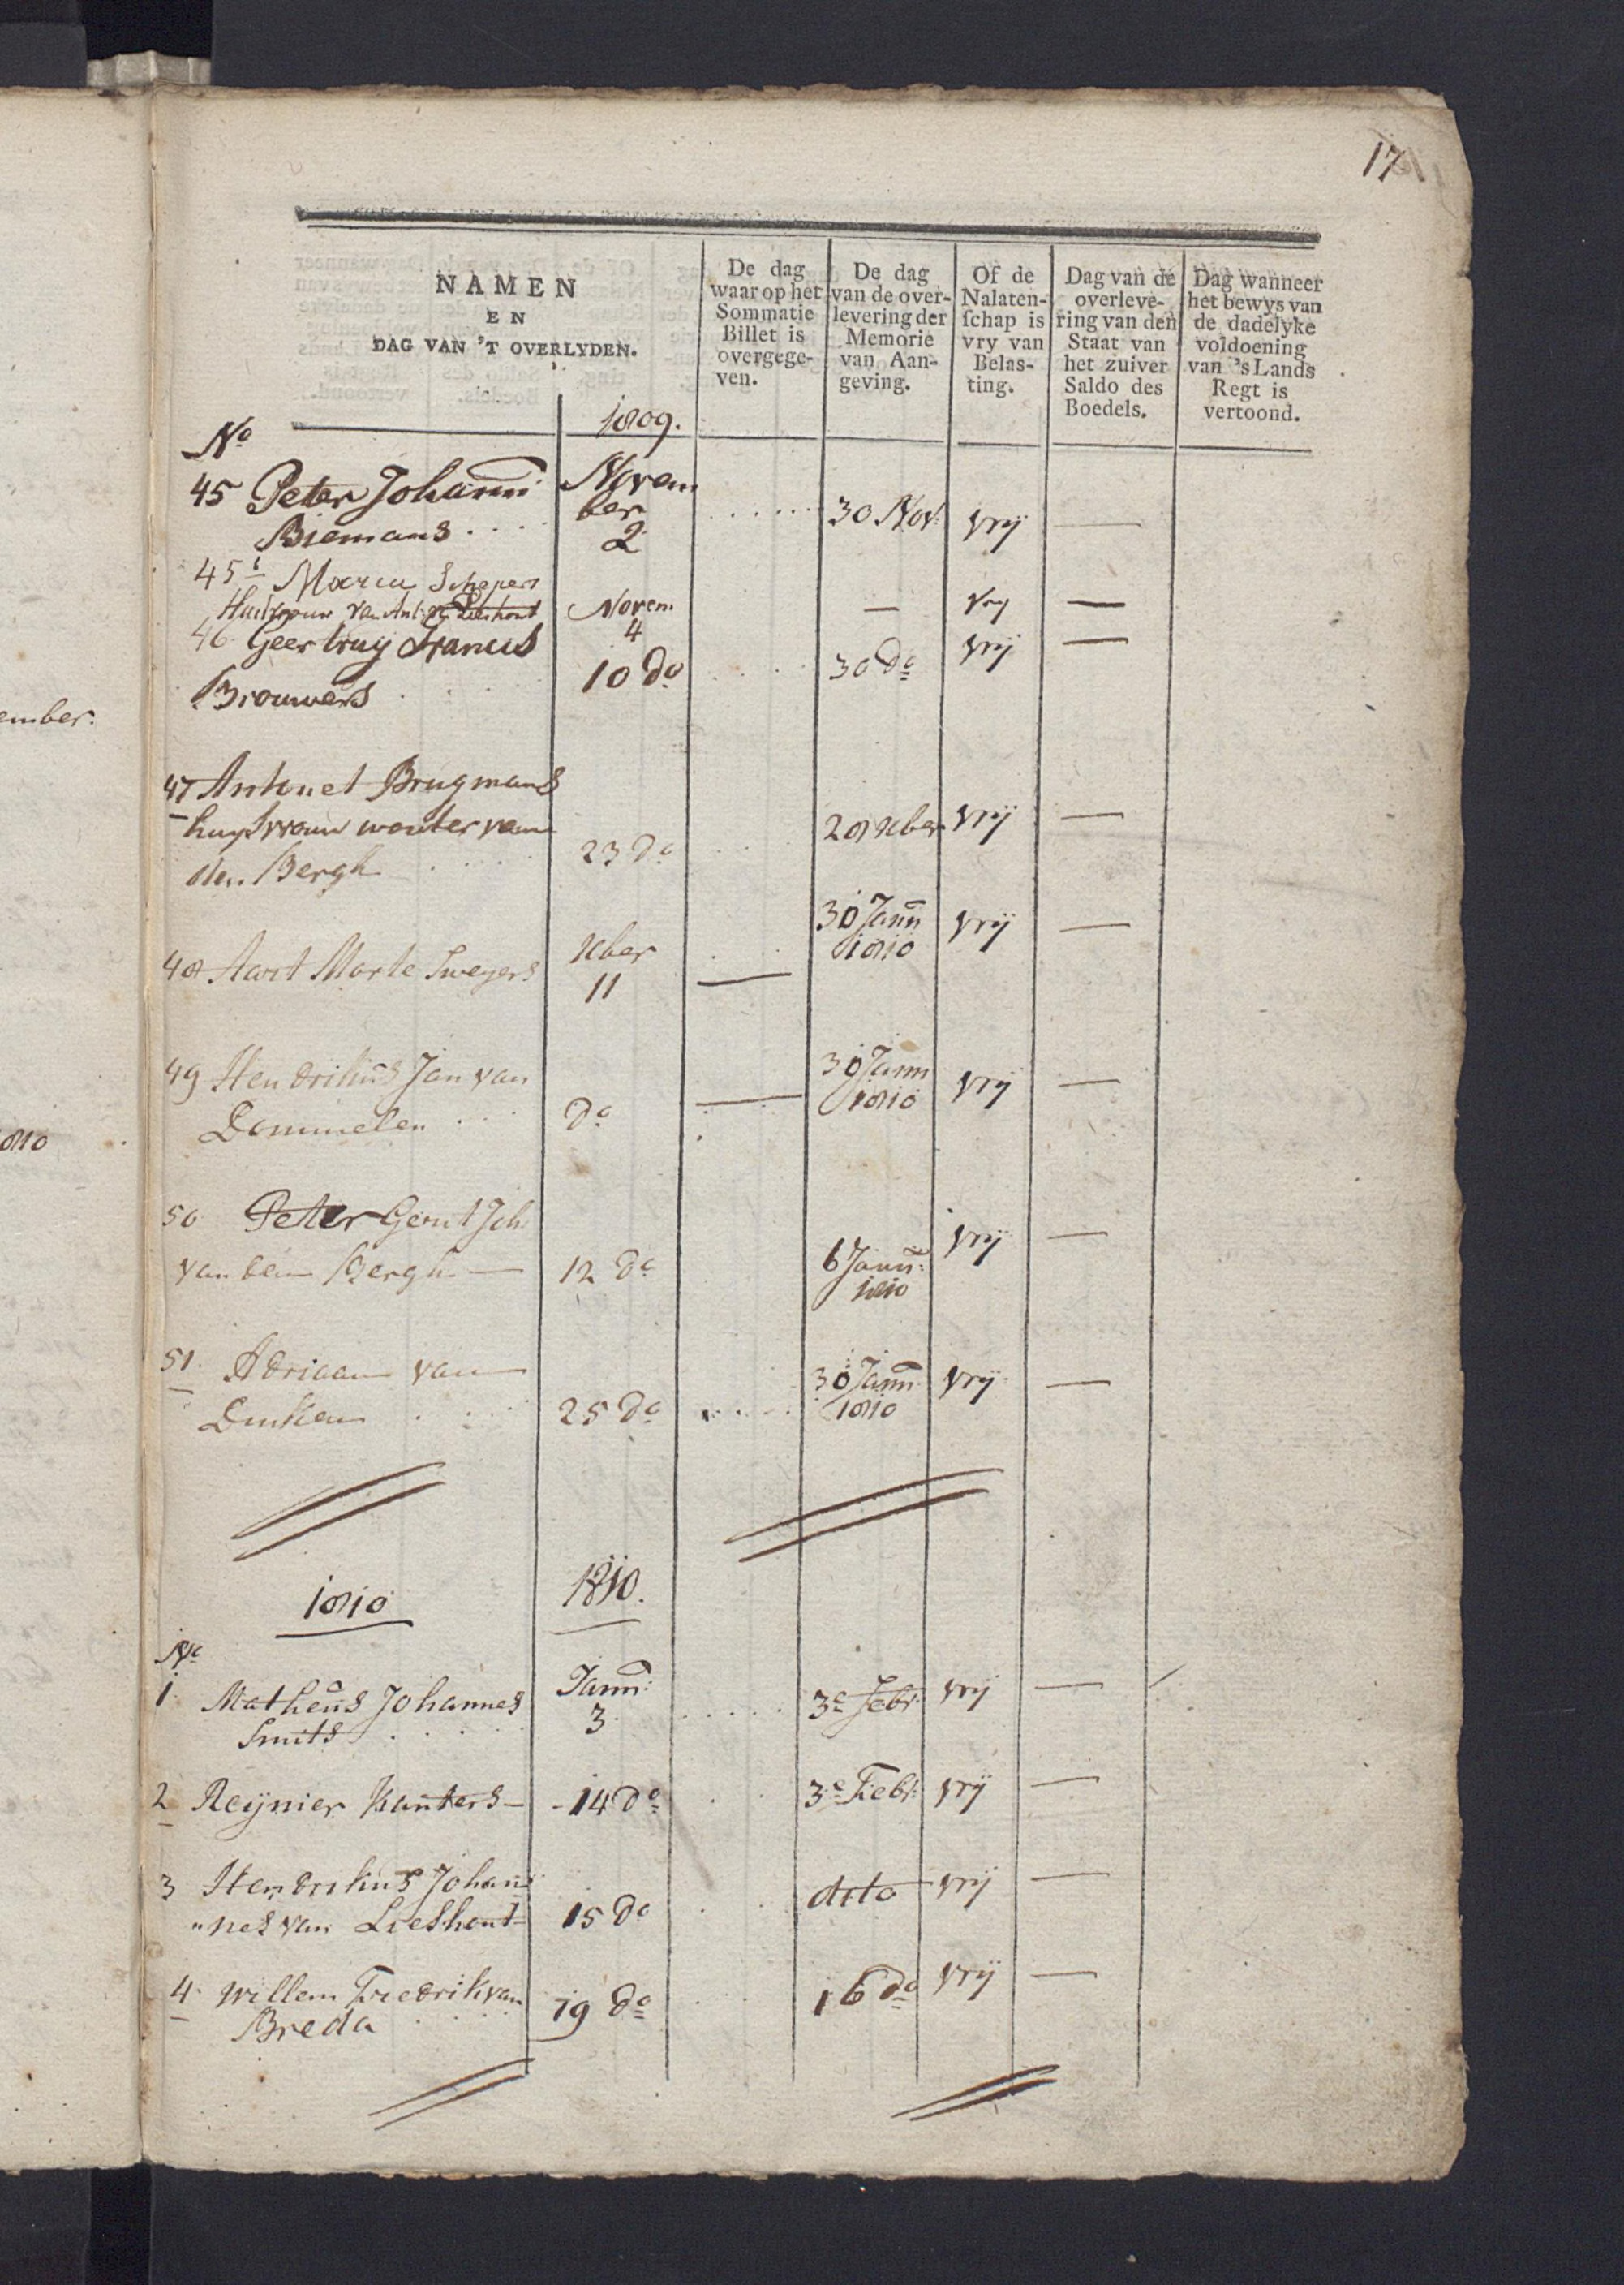 17
NAMEN
EN
DAG VAN 'T OVERLYDEN.
De dag
waar op het
Sommatie
Billet is
overgege-
ven.
De dag
van de over-
levering der
Memorie
van Aan-
geving.
Of de
Nalaten-
schap is
vry van
Belas-
ting.
Dag van de
overleve-
ring van den
Staat van
het zuiver
Saldo des
Boedels.
Dag wanneer
het bewys van
de dadelyke
voldoening
van 's Lands
Regt is
vertoond.
No 1809.
45 Peter Johanni Novem
Biemans . . . . ber 2 . . . . . 30 Nov: vrij —
45 1 Maria Schepers
Huisvrouw van Ant: v Lieshout Novem 4 — vry —
46 Geertruy Francis
Brouwers 10 do . . . 30 do vrij —
47 Antonet Brugmans
huysvrouw wouter van
den Bergh 23 do . . . 28 Xber vrij —
48 Aart Marte Swegers Xber 11 — 30 Jann 1810 vrij —
49 Hendrikus Jan van
Dommelen . . . do — 30 Jann 1810 vrij —
50 Peter Gerrit Joh
van den Bergh — 12 do 6 Jann: 1810 vrij —
51. Adriaan van
Dinken . . . . 25 do . . . . 30 Jann 1810 vrij —
1810 1810.
No
1. Matheus Johannes Jann:
Smits . . . . 3 . . . . . 3e Febr vrij —
2 Reijnier Kanters — 14 do . . 3e Febr: vrij —
3 Hendrikus Johan
"nes van Lieshout 15 do . . dito vrij —
4. Willem Fredrik van
Breda . . . . 19 do . . . 16 do vrij —
ember.
1810